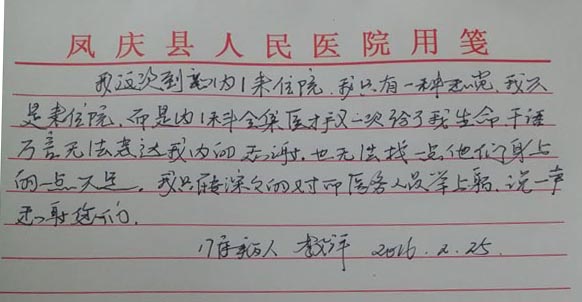 凤庆县人民医院用笺
我这次到 内1来住院,我只有一种感觉,我不
是来住院,而是内1科全集医才又一次给了我生命千语
万言无法表达我内的感谢,也无法找一点他们身上
的一点不足,我只 深深的对 医务人员举上躬,说一声
感谢您们,
病人 2016.2.25.